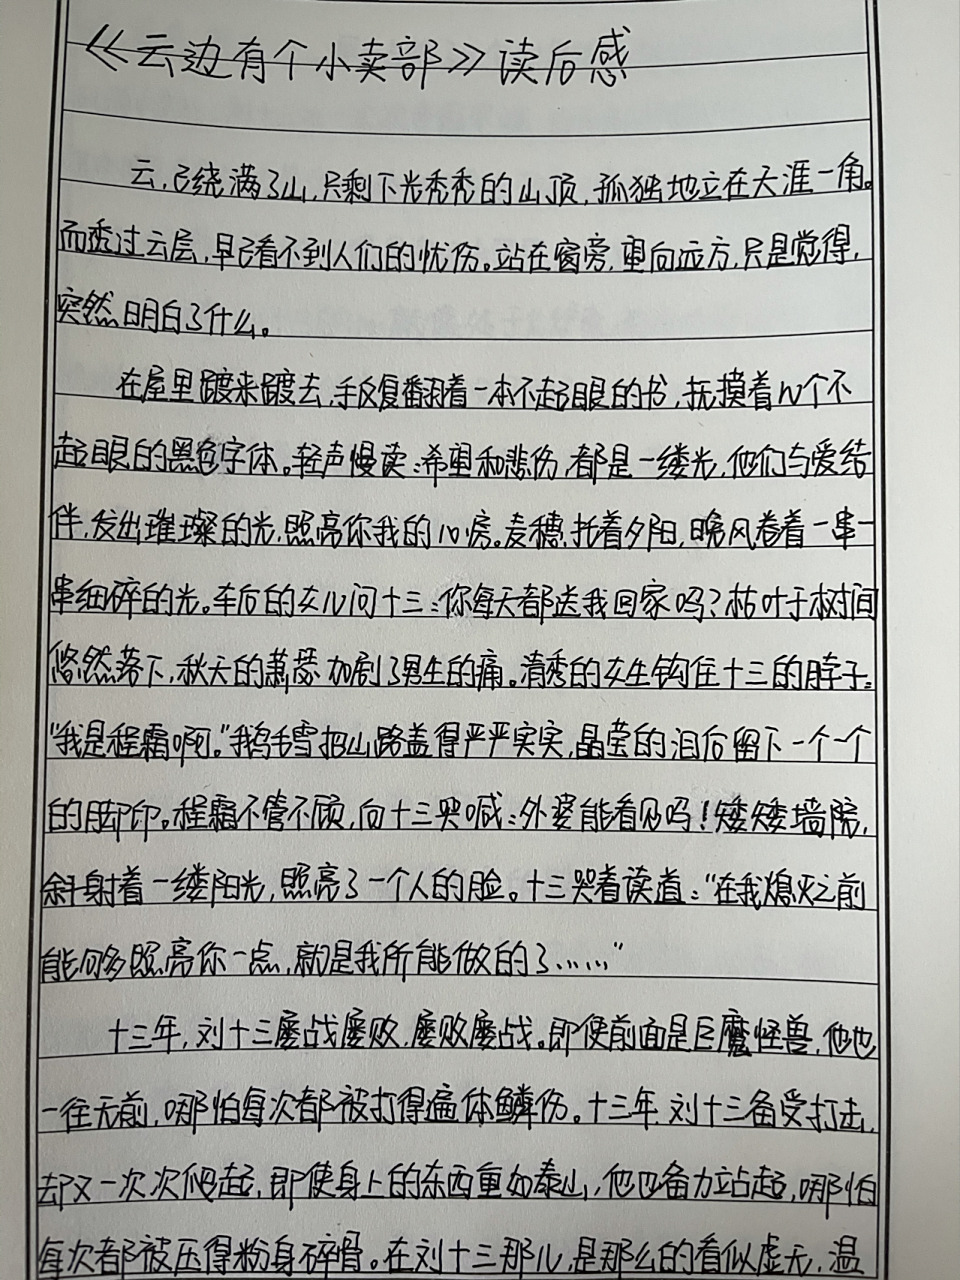 《云边有个小卖部》读后感
云,已绕满了山,只剩下光秃秃的山顶,孤独地立在天涯一角。
而透过云层,早已看不到人们的忧伤。站在窗旁,重向远方,只是觉得,
突然明白了什么。
在屋里踱来踱去,手反复翻着一本不起眼的书,抚摸着几个不
起眼的黑色字体。轻声慢读:希望和悲伤,都是一缕光,他们与爱结
伴,发出璀璨的光,照亮你我的心房。麦穗托着夕阳,晚风卷着一串一
串细碎的光。车后的女儿问十三:你每天都送我回家吗?枯叶于树间
悠然落下,秋天的萧瑟加剧了男生的痛。清秀的女生钩住十三的脖子:
“我是程霜啊。”鹅毛雪把山路盖得严严实实,晶莹的泪后留下一个一个
的脚印。程霜不管不顾,向十三哭喊:外婆能看见吗!矮矮墙院,
斜射着一缕阳光,照亮了一个人的脸。十三哭着读道:“在我熄灭之前
能够照亮你一点,就是我所能做的了……”
十三年,刘十三屡战屡败,屡败屡战。即使前面是巨魔怪兽,他也
一往无前,哪怕每次都被打得遍体鳞伤。十三年,刘十三备受打击,
却又一次次爬起,即使身上的东西重如泰山,他也奋力站起,哪怕
每次都被压得粉身碎骨。在刘十三那儿,是那么的看似虚无,温